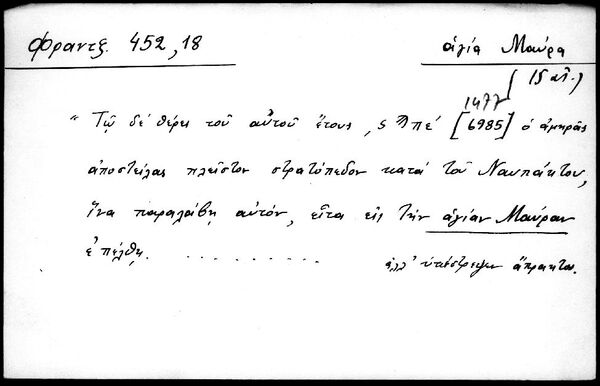 Φραντζ. 452, 18
ἁγία Μαύρα
(15 αἰ.)
1477
"Τῷ δὲ θέρει τοῦ αὐτοῦ ἔτους, ϛϠπέ [6985] ὁ ἀμηρᾶς
ἀποστείλας πλεῖστον στρατόπεδον κατά τοῦ Ναυπάκτου,
ἵνα παραλάβῃ αὐτόν, εἶτα εἰς τήν ἁγίαν Μαύραν
ἐπέλθῃ. . . . . . . . . . ἀλλ' ὑπέστρεψεν ἄπρακτον.